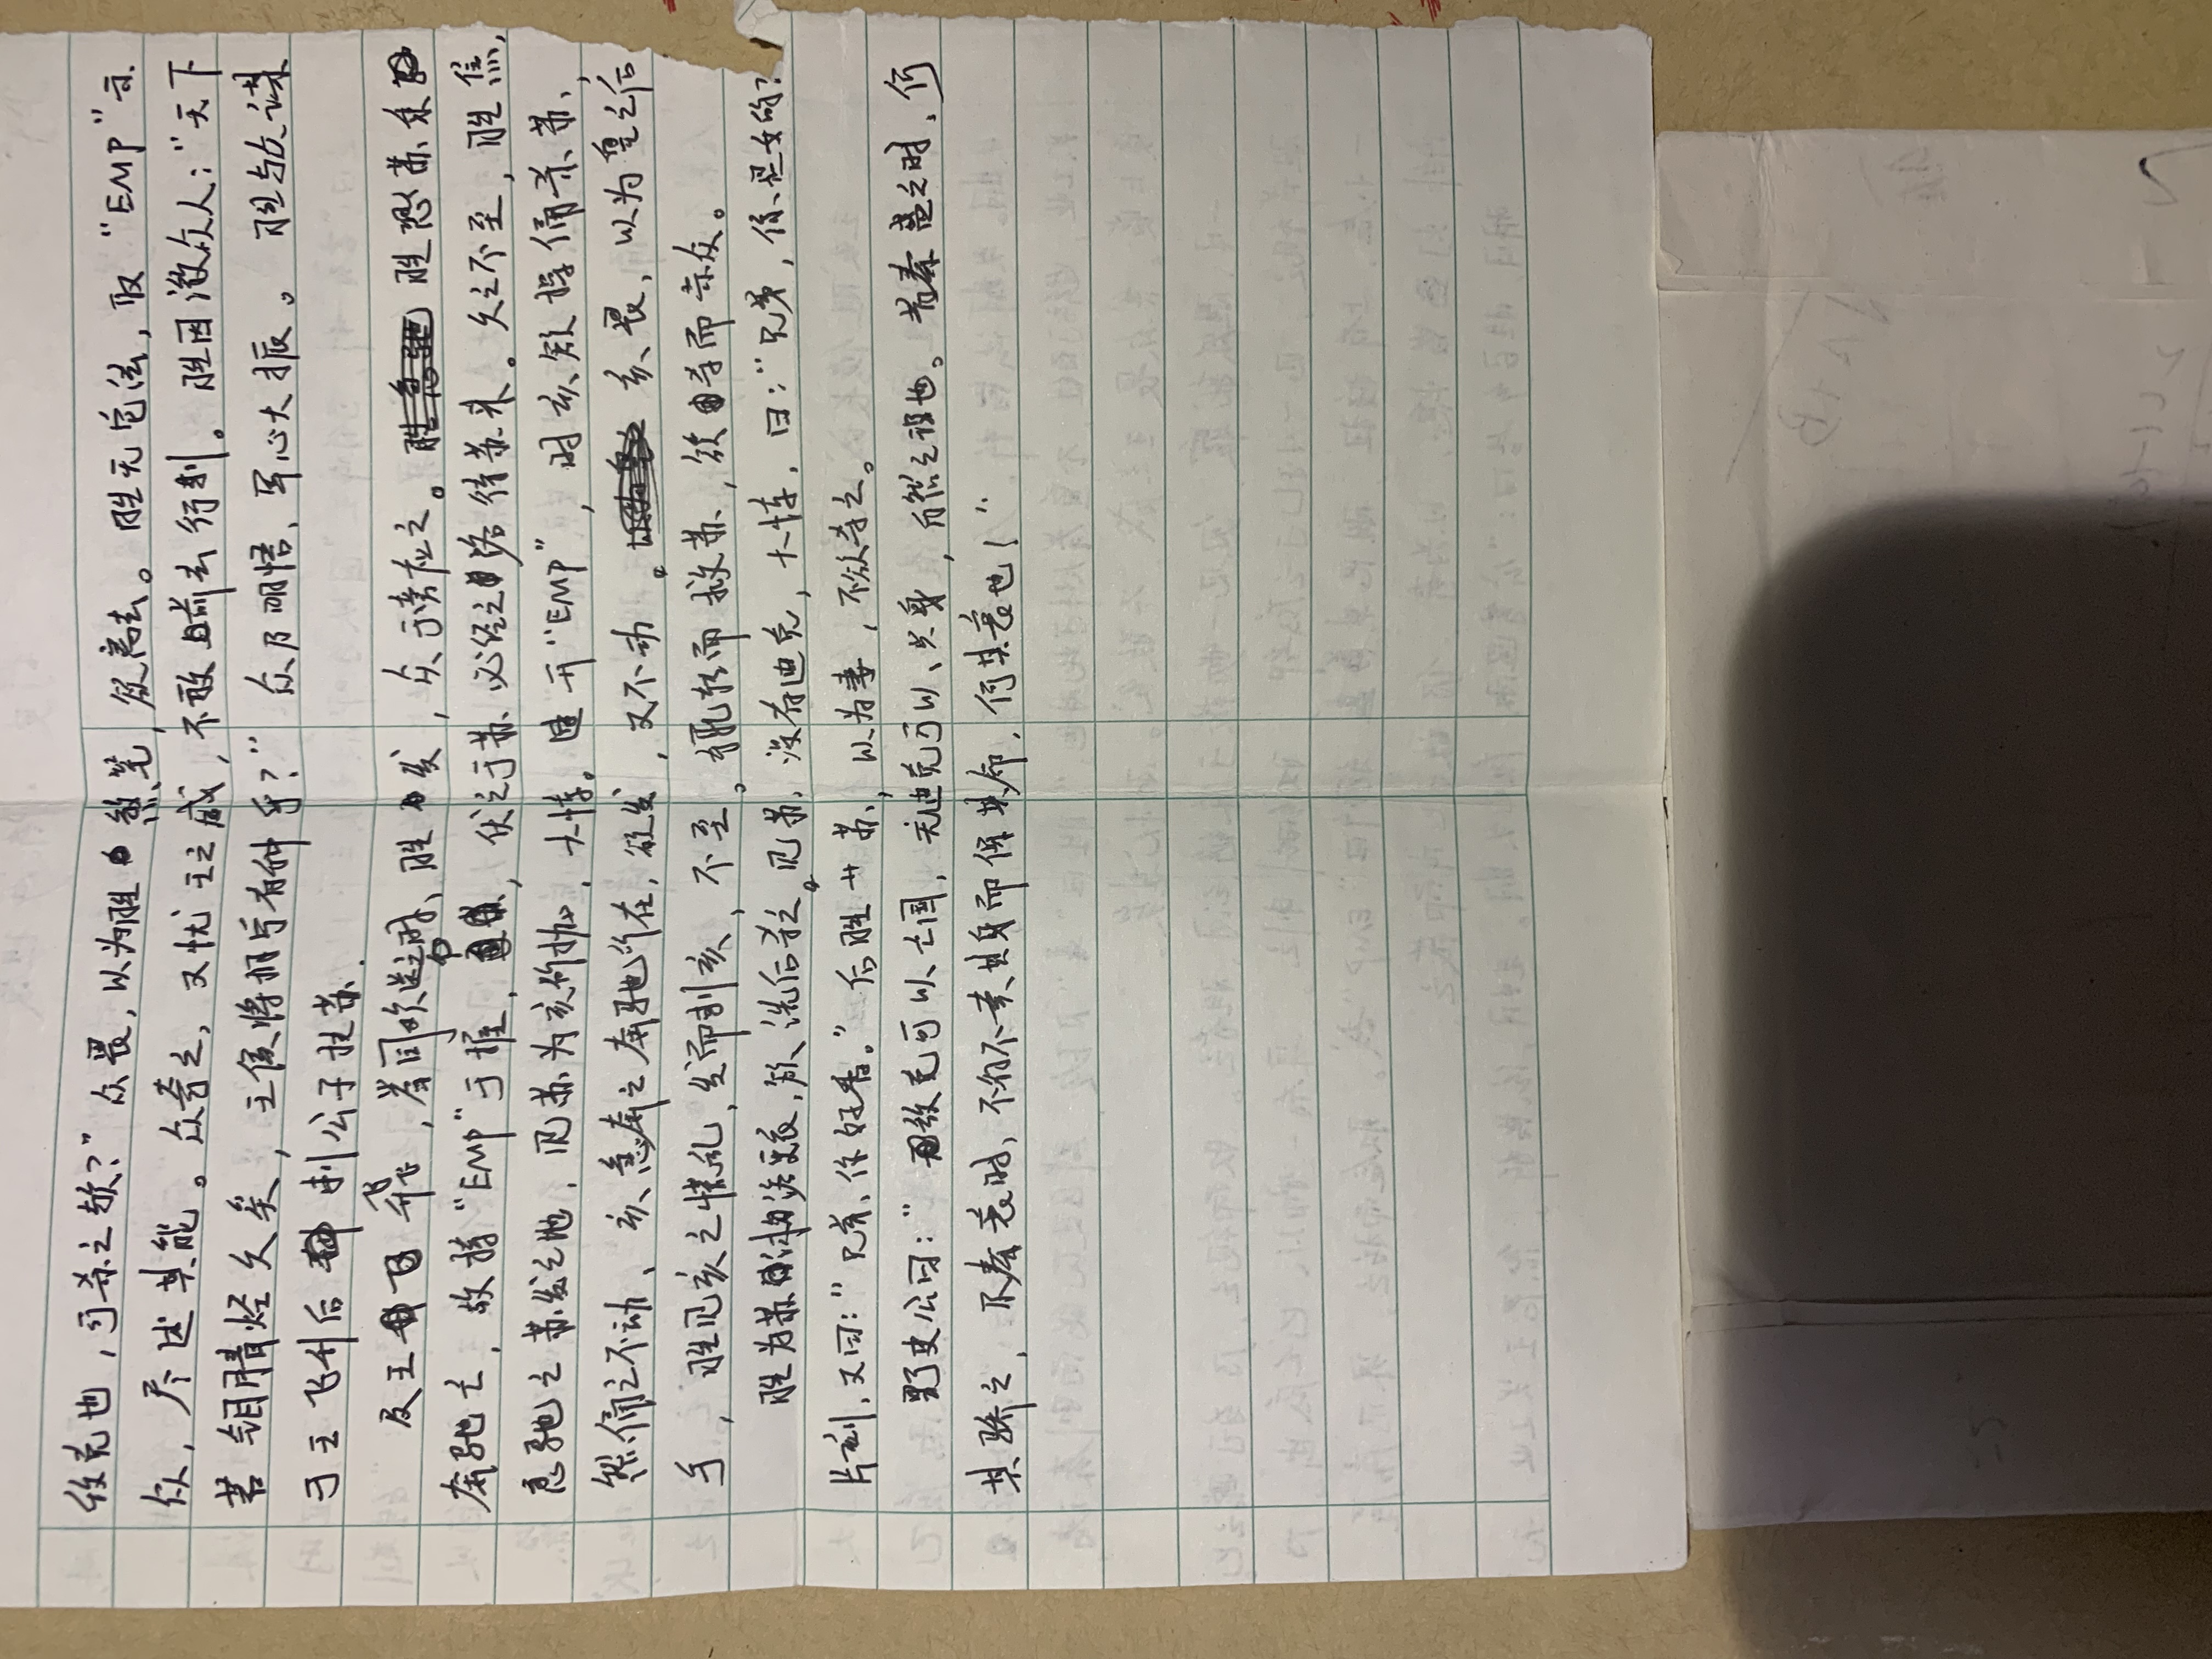 攸克也，可杀之欤？”众畏，以为胜煞笔，欲离去。胜无它法，取“EMP”示
众，尽述其能。众奇之，又忧王之威，不敢前去行刺。胜因激众人：“天下
苦钼腈烃久矣，王侯将相宁有种乎？”众乃明悟，军心大振。胜与众谋
于王飞升后刺公子扶苏.
及王飞升，举同欢送之时、胜发，众于旁应之。胜恐苏乘
奔驰亡，故持“EMP”于握，伏之于苏必经之路待苏来。久之不至，胜焦，
急驰之苏发之地，见苏为亥所拗，大惊。速开“EMP”，时亥欲操俑杀苏，
然俑之不动，亥急奔之奔驰所在，欲发，又不动。亥畏，以为皇之后
手，胜见亥之慌乱，发而刺亥，不至。转而救苏，欲杀而示众。
胜为苏沐浴更衣，欲洗后杀之。见苏没有迪克，大惊，曰：“兄弟，你是女的？
片刻，又曰：“兄弟，你好香。”后胜艹苏，以为妻，不欲杀之。
野史公曰：“攸克可以亡国，无迪克可以失身，所谓之谓也。昔秦盛之时，何
其骄之，及秦衰时，不得不卖其身而保其命，何其哀也！”